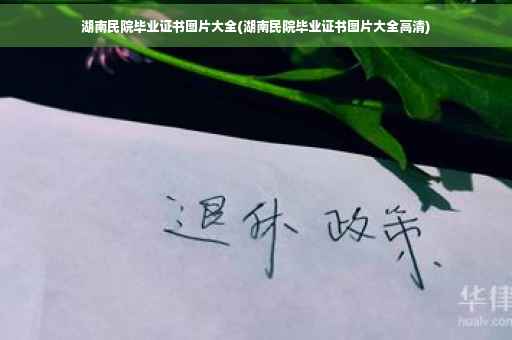 湖南民院毕业证书图片大全(湖南民院毕业证书图片大全高清)
退休 政策
华律
hualv.com